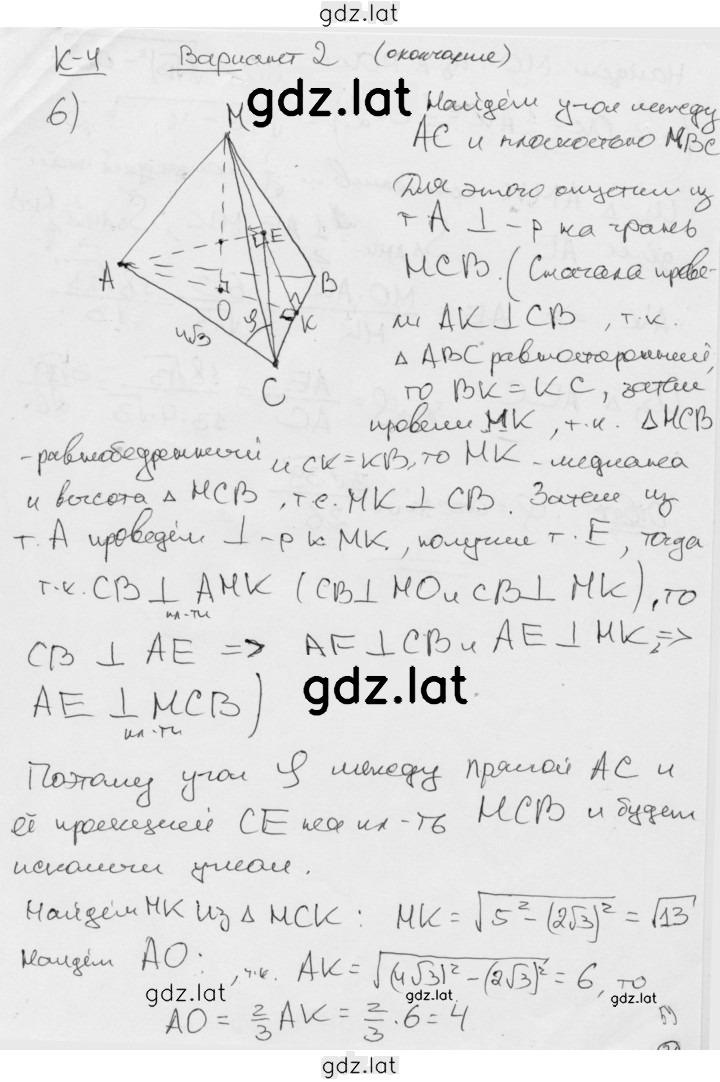 gdz.lat
К-4 Вариант 2 (окончание)
6)
gdz.lat
Найдём угол между
AC и плоскостью MBC
Для этого опустим из
т. A ⊥-р на грань
MCB. (Сначала прове-
ли AK ⊥ CB, т.к.
△ ABC равносторонний,
то BK = KC, затем
провели MK, т.к. △ MCB
M
A
E
B
O
φ
K
4√3
C
-равнобедренный и CK = KB, то MK - медиана
и высота △ MCB, т.е. MK ⊥ CB. Затем из
т. A проведём ⊥-р к MK, получим т. E, тогда
т.к. CB ⊥ пл-ти AMK (CB ⊥ MO и CB ⊥ MK), то
CB ⊥ AE => AE ⊥ CB и AE ⊥ MK, =>
AE ⊥ пл-ти MCB)
gdz.lat
Поэтому угол φ между прямой AC и
её проекцией CE на пл-ть MCB и будет
искомым углом.
Найдём MK из △ MCK : MK = √(5² - (2√3)²) = √13
Найдём AO : , т.к. AK = √((4√3)² - (2√3)²) = 6, то
gdz.lat
gdz.lat
AO = 2/3 AK = 2/3 · 6 = 4
gdz.lat